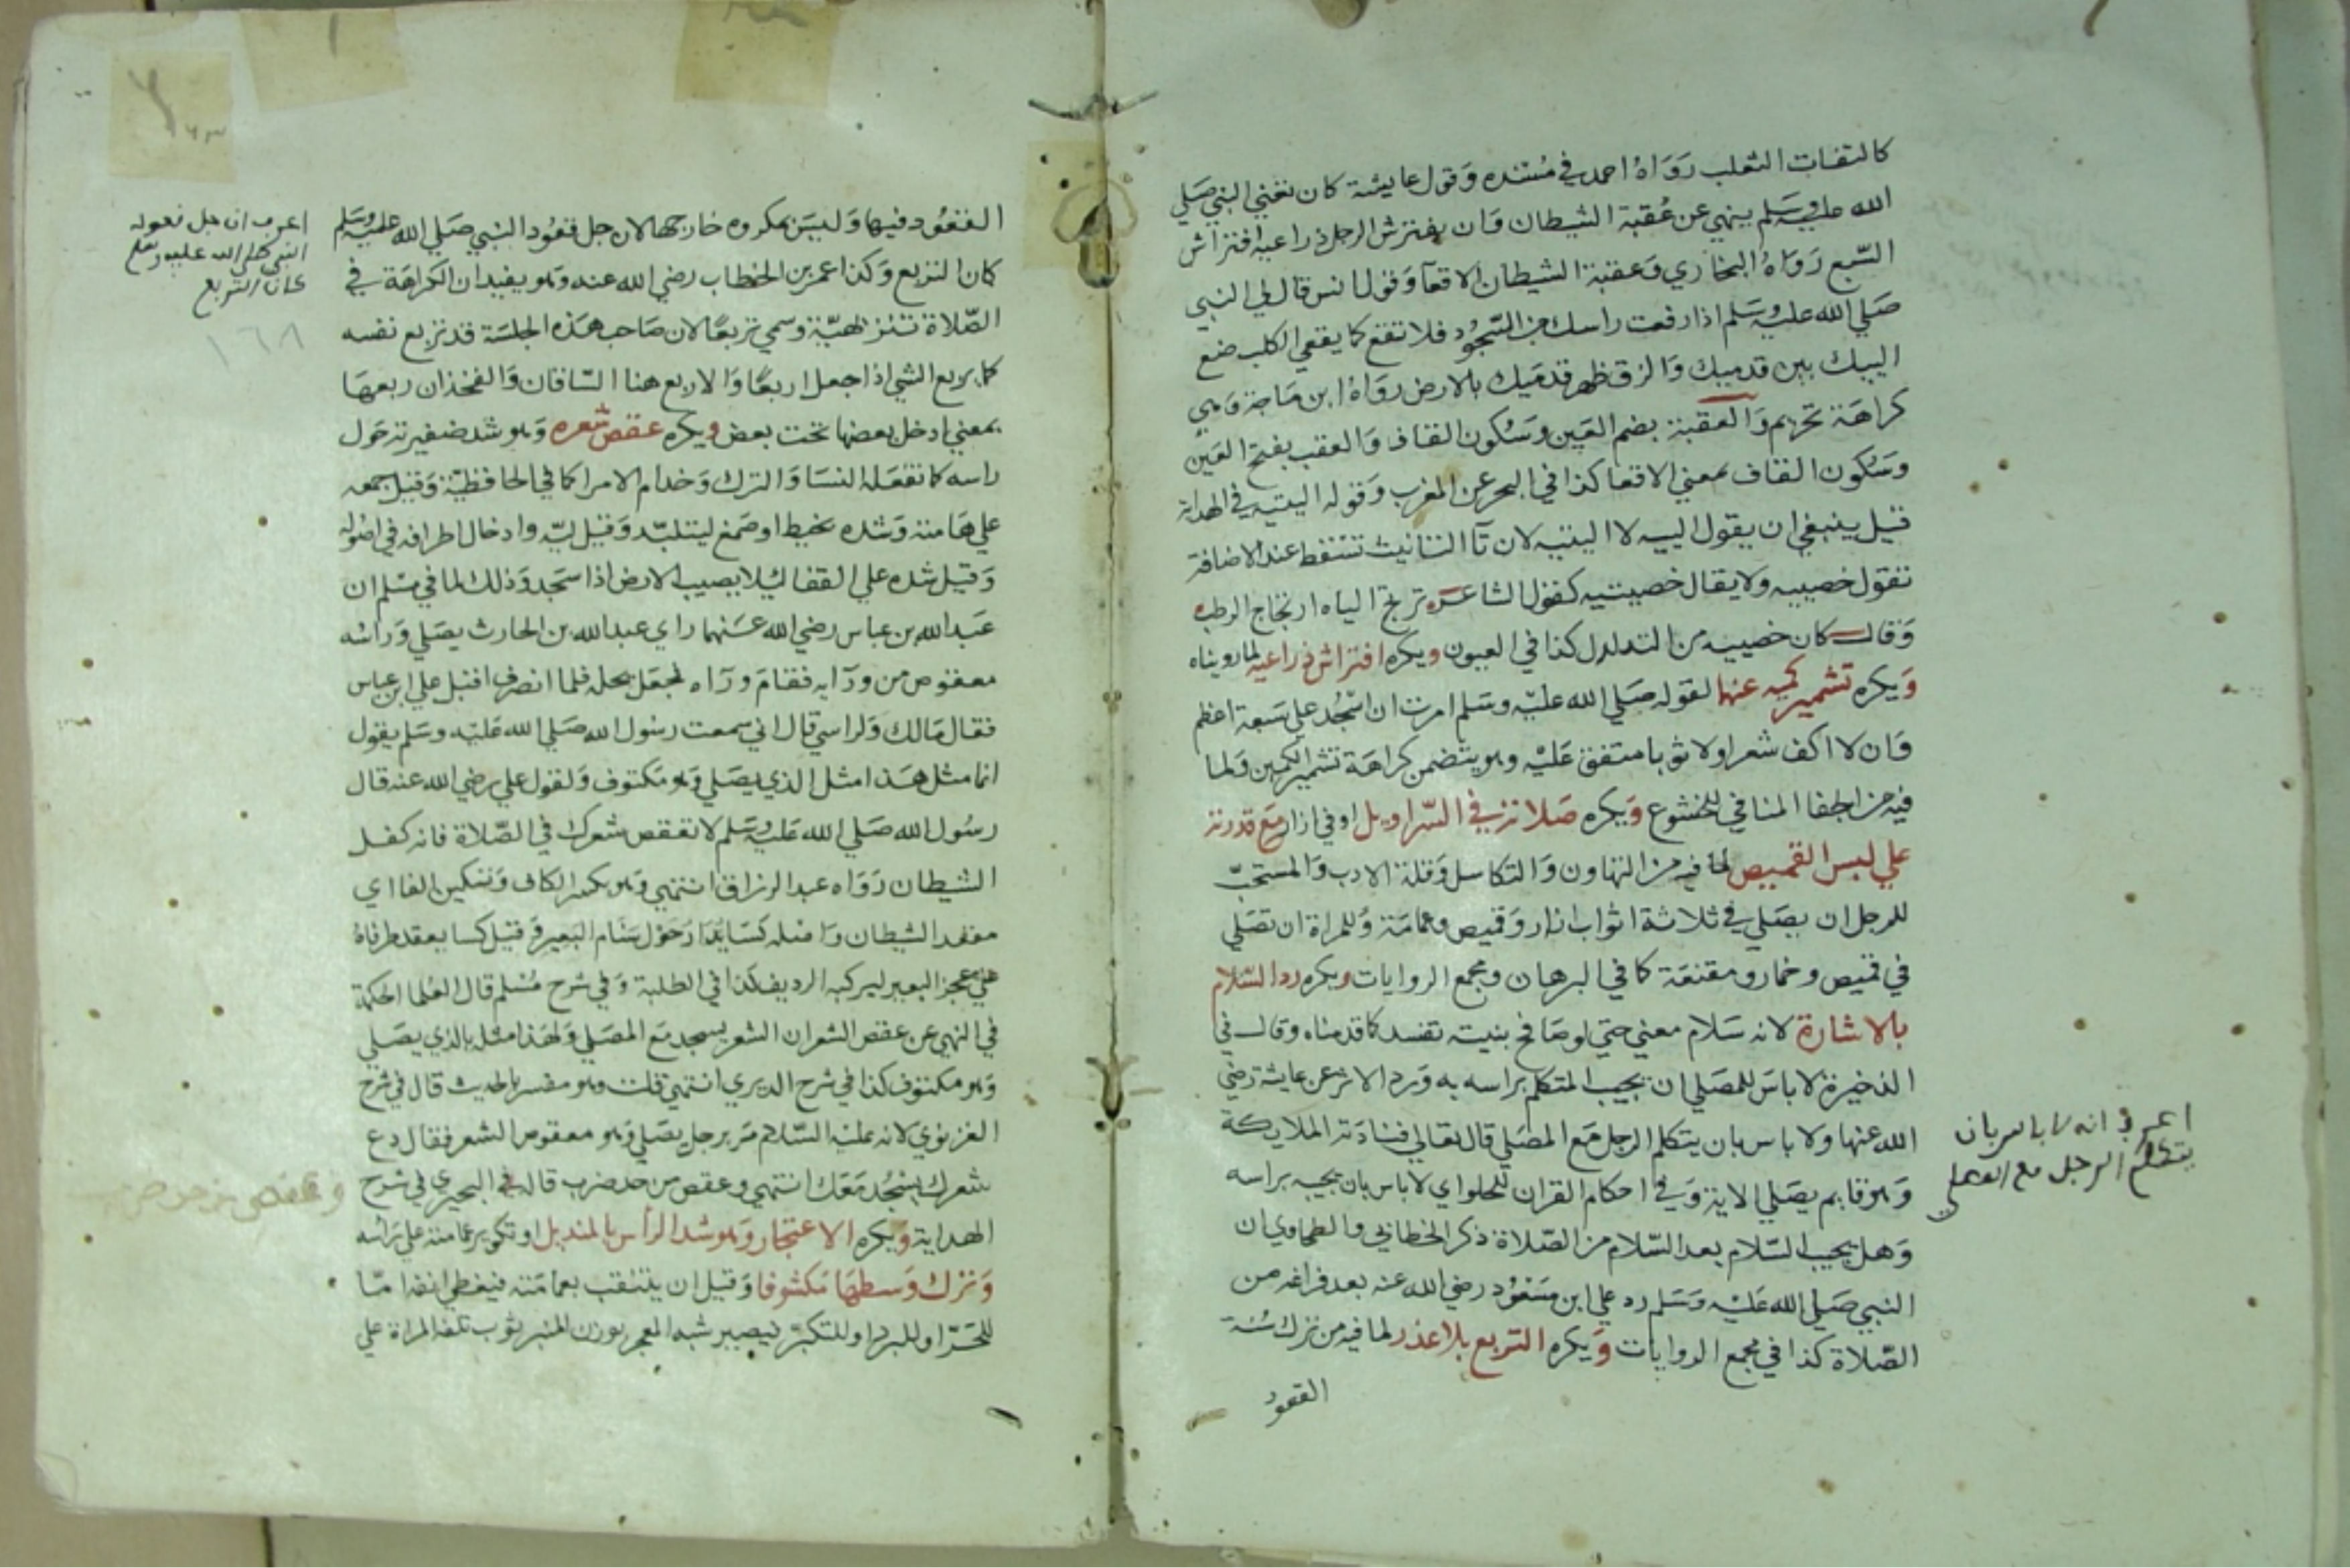 كالتفات الثعلب رَوَاهُ احمد في مُسنده وَقول عايشة كان تعني النبي صَلي
الله عليه وسَلم ينهي عن عُقبة الشيطان وَان يفترش الرجل ذراعيه افتراش
السّبع رَوَاهُ البخاري وَعقبة الشيطان الاقعآ وَقول انس قال لي النبي
صَلي الله عليه وسَلم اذا رفعت راسك من السّجُود فلا تقع كما يقعي الكلب ضع
اليبك بين قدميك وَالزق ظهر قدمَيك بالارض رَوَاهُ ابن مَاجة وَهي
كراهَة تحريم وَالعقبة بضم العَين وسَكون القاف وَالعقب بفتح العَين
وسَكون القاف بمعني الاقعا كذا في البحر عن المغرب وَقوله اليتيه في الهداية
قيل ينبغي ان يقول الييه لا اليتيه لان تآ التانيث تسقط عند الاضافة
تقول خصييه ولا يقال خصيتيه كقول الشاعر ترتج الياه ارتجاج الوطب
وَقال كان خصييه من التدلدل كذا في العيون ويكره افتراش ذراعيه لما رويناه
وَيكره تشمير كميه عنهما لقوله صَلي الله عليْه وسَلم امرت ان اسْجُد علي سَبعة اعظم
وَان لا اكف شعرا ولا ثوبا متفق عَليْه وهو يتضمن كراهَة تشمير الكمين وَلما
فيه من الجفا المنافي للخشوع وَيكره صَلاته في السّراويل او في ازار مَع قدرته
علي لبس القميص لما فيه من التهاون وَالتكاسل وَقلة الادب وَالمستحبّ
للرجل ان يصَلي في ثلاثة اثواب ازار وَقميص وعمامَة وَللمراة ان تصَلي
في قميص وخمار ومقنعَة كما في البرهان ومجمع الروايات ويكره رد السّلام
بالاشارة لانه سَلام معني حتي لو صَافح بنيته تفسد كما قدمناه وقال في
الذخيرة لا باسَ للمصَلي ان يجيب المتكلم براسه به وَرد الاثر عن عايشة رضي
الله عنها ولا باس بان يتكلم الرجل مَع المصَلي قال تعالي فنادَته الملايكة
وَهو قايم يصَلي الاية وَفي احكام القران للحلواي لا باس بان يجيب براسه
وَهل يجيب السّلام بعد السّلام من الصّلاة ذكر الخطابي والطحاوي ان
النبي صَلي الله عَليْه وَسَلم رد علي ابن مَسْعُود رضي الله عنه بعد فراغه من
الصّلاة كذا في مجمع الروايات وَيكره التربع بلا عذر لما فيه من ترك سُنة
القعود
اعرف انه لا باس بان
يتكلم الرجل مع المصلي
القعُود فيها وَليسَ بمكروه خارجها لان جل قعُود النبي صَلي الله عليه وسَلم
كان التربع وَكذا عمر بن الخطاب رضي الله عنه وَهو يفيد ان الكراهَة في
الصّلاة تنزيهيّة وسمي تربعًا لان صَاحب هَذه الجلسَة قد تربع نفسه
كما يربع الشي اذا جعل اربعًا وَالاربع هنا السّاقان وَالفخذان ربعهَا
بمعني ادخل بعضها تحت بعض ويكره عقص شعره وَهو شد ضفيرته حَول
راسه كما تفعَله النسَا وَالترك وَخدام الامرا كما في الحافظيّة وَقيل جمعه
علي هَامته وَشده بخيط او صَمغ ليتلبّد وَقيل ليّه وادخال اطرافه في اصُوله
وَقيل شده علي القفا ليلا يصيب الارض اذا سَجد وَذلك لما في مسْلم ان
عَبد الله بن عباس رضي الله عَنهما راي عبد الله بن الحارث يصَلي وَراسُه
معقوص من ورآيه فقامَ ورآه فجعَل يحله فلما انصرف اقبل علي ابن عباس
فقال مَالك وَلراسي قال اني سمعت رسُول الله صَلي الله عَليه وسَلم يقول
انما مثل هَذا مثل الذي يصَلي وَهو مَكتوف وَلقول علي رضي الله عنه قال
رسُول الله صَلي الله عَليه وسَلم لا تعقص شعرك في الصّلاة فانه كفل
الشيطان رَوَاه عبد الرزاق انتهي وَهو بكسر الكاف وَتسكين الفا اي
مقعد الشيطان وَاصله كسَا يُدَار حَوْل سَنام البَعير وَقيل كسا يعقد طرفاهُ
علي عجز البعير ليركبه الرديف كذا في الطلبة وَفي شرح مُسْلم قال العُلما الحكمة
في النهي عن عقص الشعر ان الشعر يسجد مَع المصَلي وَلهَذا مثله بالذي يصَلي
وَهو مكتوف كذا في شرح الديري انتهي قلت وَهو مفسر بالحديث قال في شرح
الغزنوي لانه عليْه السّلام مَر برجل يصَلي وَهو معقوص الشعر فقال دع
شعرك يسْجُد مَعَك انتهي وعقص من حد ضرب قاله في البحيري في شرح
الهداية وَيكره الاعتجار وَهو شد الرأس بالمنديل او تكوير عمامته علي رَاسُه
وَترك وَسطهَا مَكشوفا وَقيل ان يتنقب بعمامَته فيغطي انفه امّا
للحَرّ او للبرد او للتكبّر فيصير شبه المعجر بوزن المنبر ثوب تلفه المراة علي
اعرف ان جل قعوده
النبي صلي الله عليه وسلم
كان التربع
١٦٨
وعقص من حد ضرب